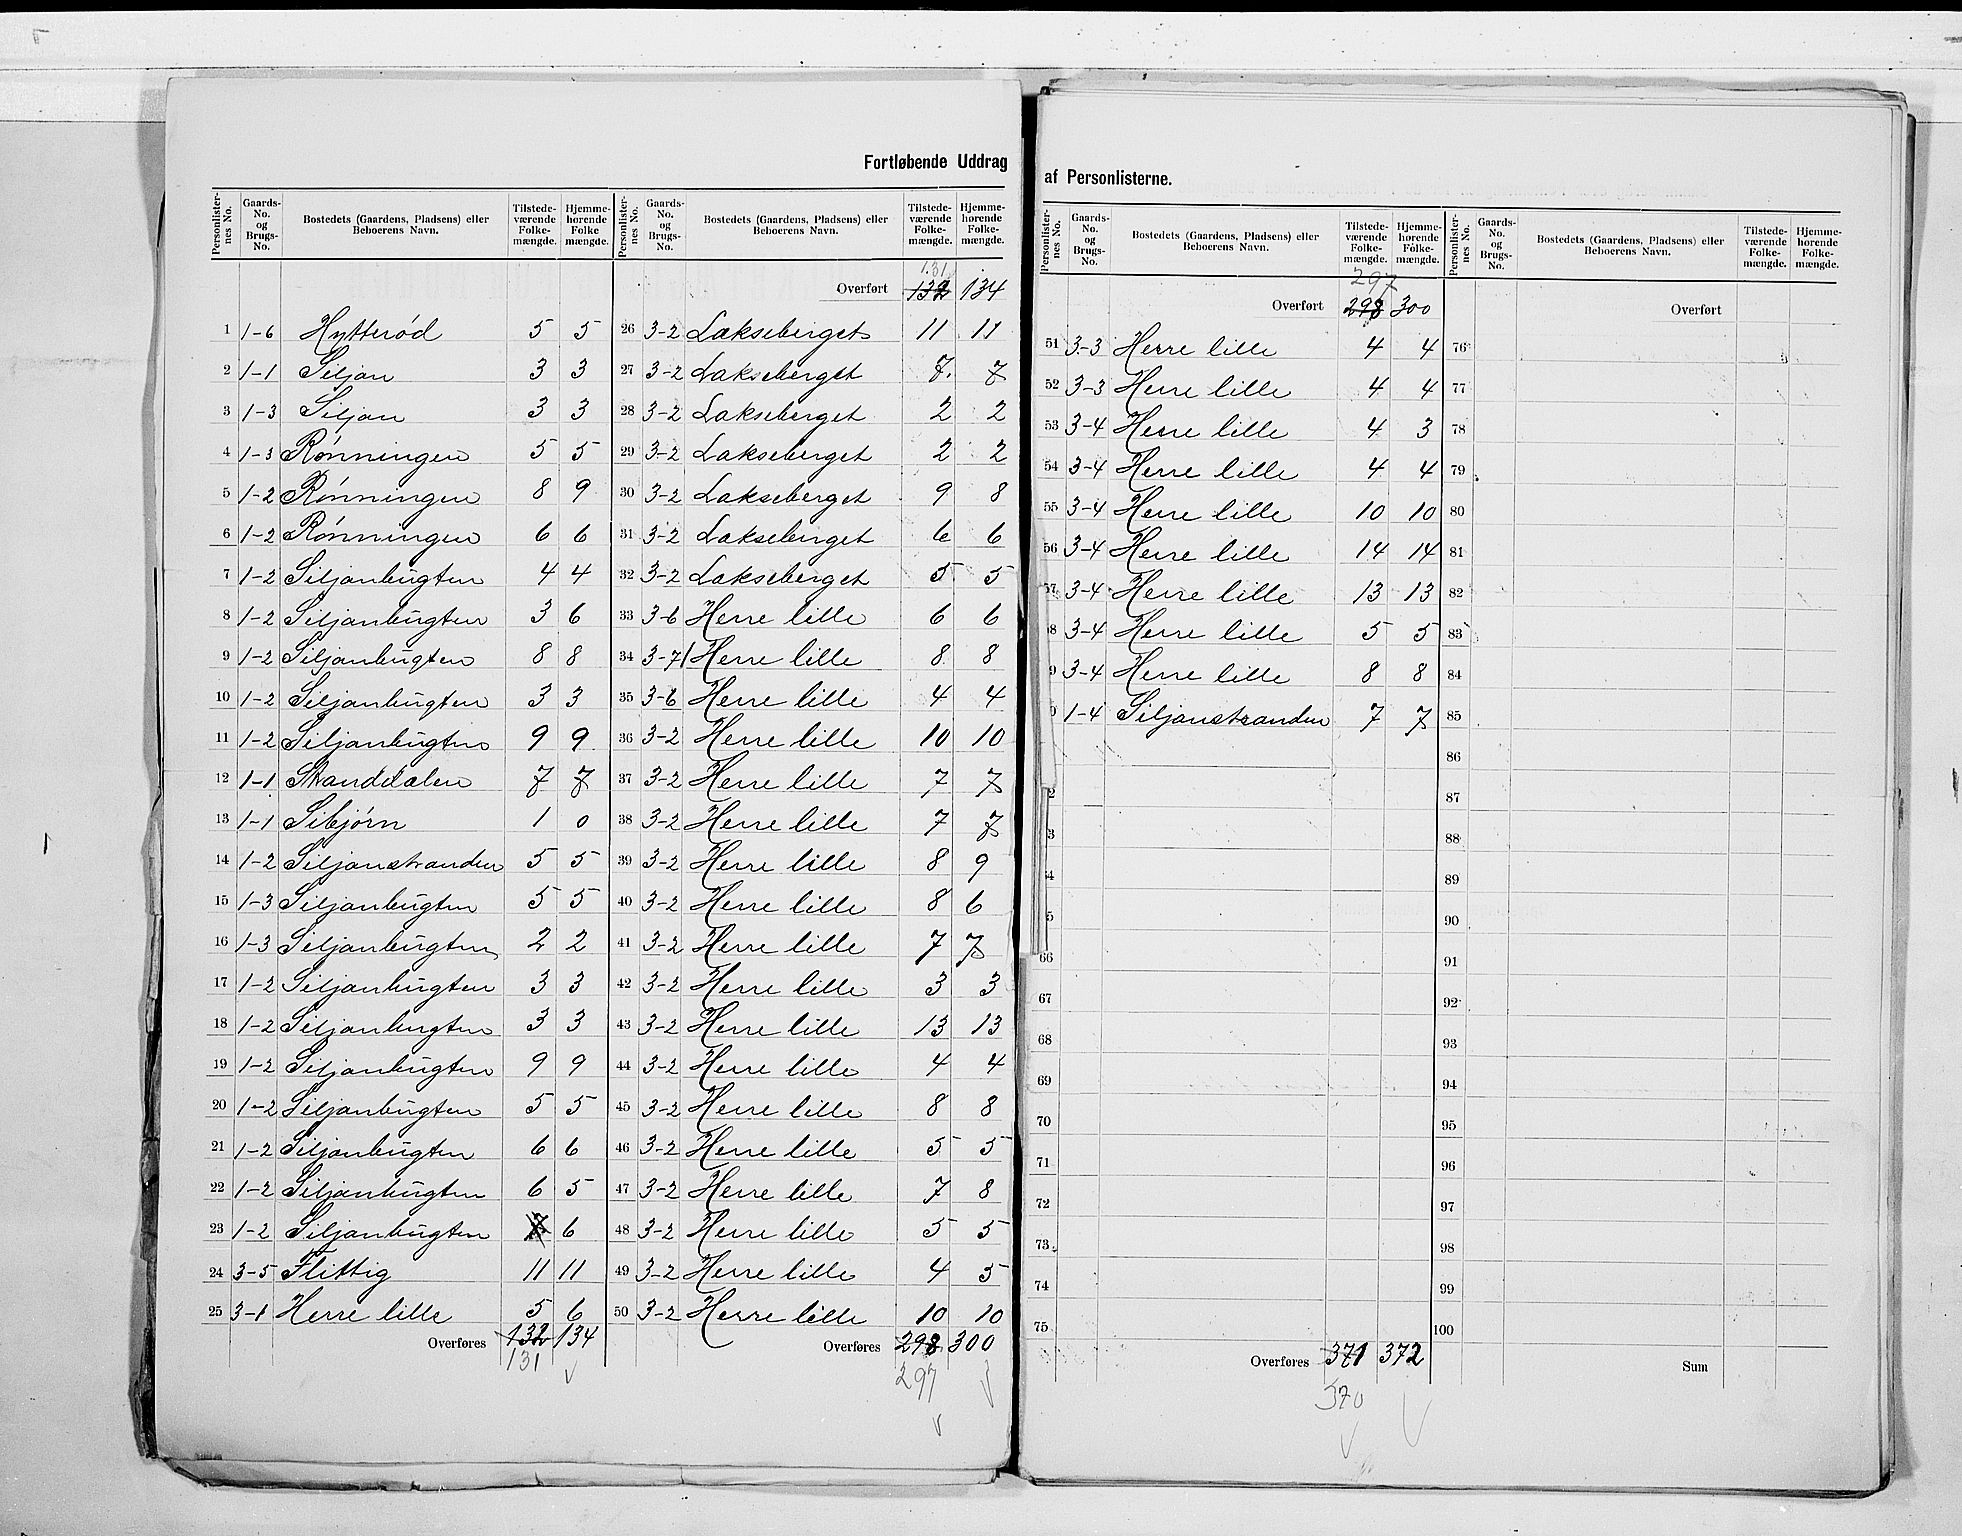 Fortløbende Uddrag
af Personlisterne.
Personlister-nes No. | Gaards-No. og Brugs-No. | Bostedets (Gaardens, Pladsens) eller Beboerens Navn. | Tilstede-værende Folke-mængde. | Hjemme-hørende Folke mængde.
1 1-6 Hytterød 5 5
2 1-1 Siljan 3 3
3 1-3 Siljan 3 3
4 1-3 Rønningen 5 5
5 1-2 Rønningen 8 9
6 1-2 Rønningen 6 6
7 1-2 Siljanbugten 4 4
8 1-2 Siljanbugten 3 6
9 1-2 Siljanbugten 8 8
10 1-2 Siljanbugten 3 3
11 1-2 Siljanbugten 9 9
12 1-1 Stranddalen 7 7
13 1-1 Sibjørn 1 0
14 1-2 Siljanstranden 5 5
15 1-3 Siljanbugten 5 5
16 1-3 Siljanbugten 2 2
17 1-2 Siljanbugten 3 3
18 1-2 Siljanbugten 3 3
19 1-2 Siljanbugten 9 9
20 1-2 Siljanbugten 5 5
21 1-2 Siljanbugten 6 6
22 1-2 Siljanbugten 6 5
23 1-2 Siljanbugten 6
24 3-5 Flittig 11 11
25 3-1 Herre lille 5 6
Overføres 132 134
131
Personlister-nes No. | Gaards-No. og Brugs-No. | Bostedets (Gaardens, Pladsens) eller Beboerens Navn. | Tilstede-værende Folke-mængde. | Hjemme-hørende Folke-mængde.
131
Overført 132 134
26 3-2 Lakseberget 11 11
27 3-2 Lakseberget 7 7
28 3-2 Lakseberget 2 2
29 3-2 Lakseberget 2 2
30 3-2 Lakseberget 9 8
31 3-2 Lakseberget 6 6
32 3-2 Lakseberget 5 5
33 3-6 Herre lille 6 6
34 3-7 Herre lille 8 8
35 3-6 Herre lille 4 4
36 3-2 Herre lille 10 10
37 3-2 Herre lille 7 7
38 3-2 Herre lille 7 7
39 3-2 Herre lille 8 9
40 3-2 Herre lille 8 6
41 3-2 Herre lille 7 7
42 3-2 Herre lille 3 3
43 3-2 Herre lille 13 13
44 3-2 Herre lille 4 4
45 3-2 Herre lille 8 8
46 3-2 Herre lille 5 5
47 3-2 Herre lille 7 8
48 3-2 Herre lille 5 5
49 3-2 Herre lille 4 5
50 3-2 Herre lille 10 10
Overføres 298 300
297
Personlister-nes No. | Gaards-No. og Brugs-No. | Bostedets (Gaardens, Pladsens) eller Beboerens Navn. | Tilstede-værende Folke-mængde. | Hjemme-hørende Folke-mængde.
297
Overført 298 300
51 3-3 Herre lille 4 4
52 3-3 Herre lille 4 4
53 3-4 Herre lille 4 3
54 3-4 Herre lille 4 4
55 3-4 Herre lille 10 10
56 3-4 Herre lille 14 14
57 3-4 Herre lille 13 13
8 3-4 Herre lille 5 5
9 3-4 Herre lille 8 8
0 1-4 Siljanstranden 7 7
2
3
4
5
66
67
68
69
70
71
72
73
74
75
Overføres 371 372
370
Personlister-nes No. | Gaards-No. og Brugs-No. | Bostedets (Gaardens, Pladsens) eller Beboerens Navn. | Tilstede-værende Folke-mængde. | Hjemme-hørende Folke-mængde.
Overført
76
77
78
79
80
81
82
83
84
85
86
87
88
89
90
91
92
93
94
95
96
97
98
99
100
Sum